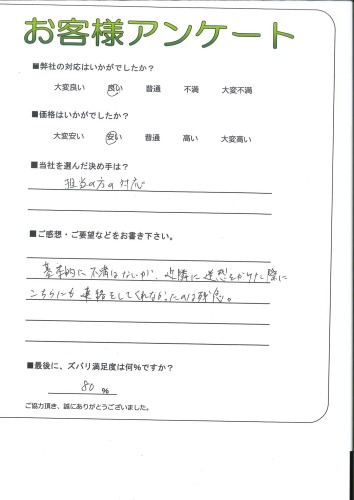 お客様アンケート
■弊社の対応はいかがでしたか？
大変良い 良い 普通 不満 大変不満
■価格はいかがでしたか？
大変安い 安い 普通 高い 大変高い
■当社を選んだ決め手は？
担当の方の対応
■ご感想・ご要望などをお書き下さい。
基本的に不満はないが、近隣に迷惑をかけた際に
こちらにも連絡をしてくれなかったのは残念。
■最後に、ズバリ満足度は何％ですか？
80 ％
ご協力頂き、誠にありがとうございました。